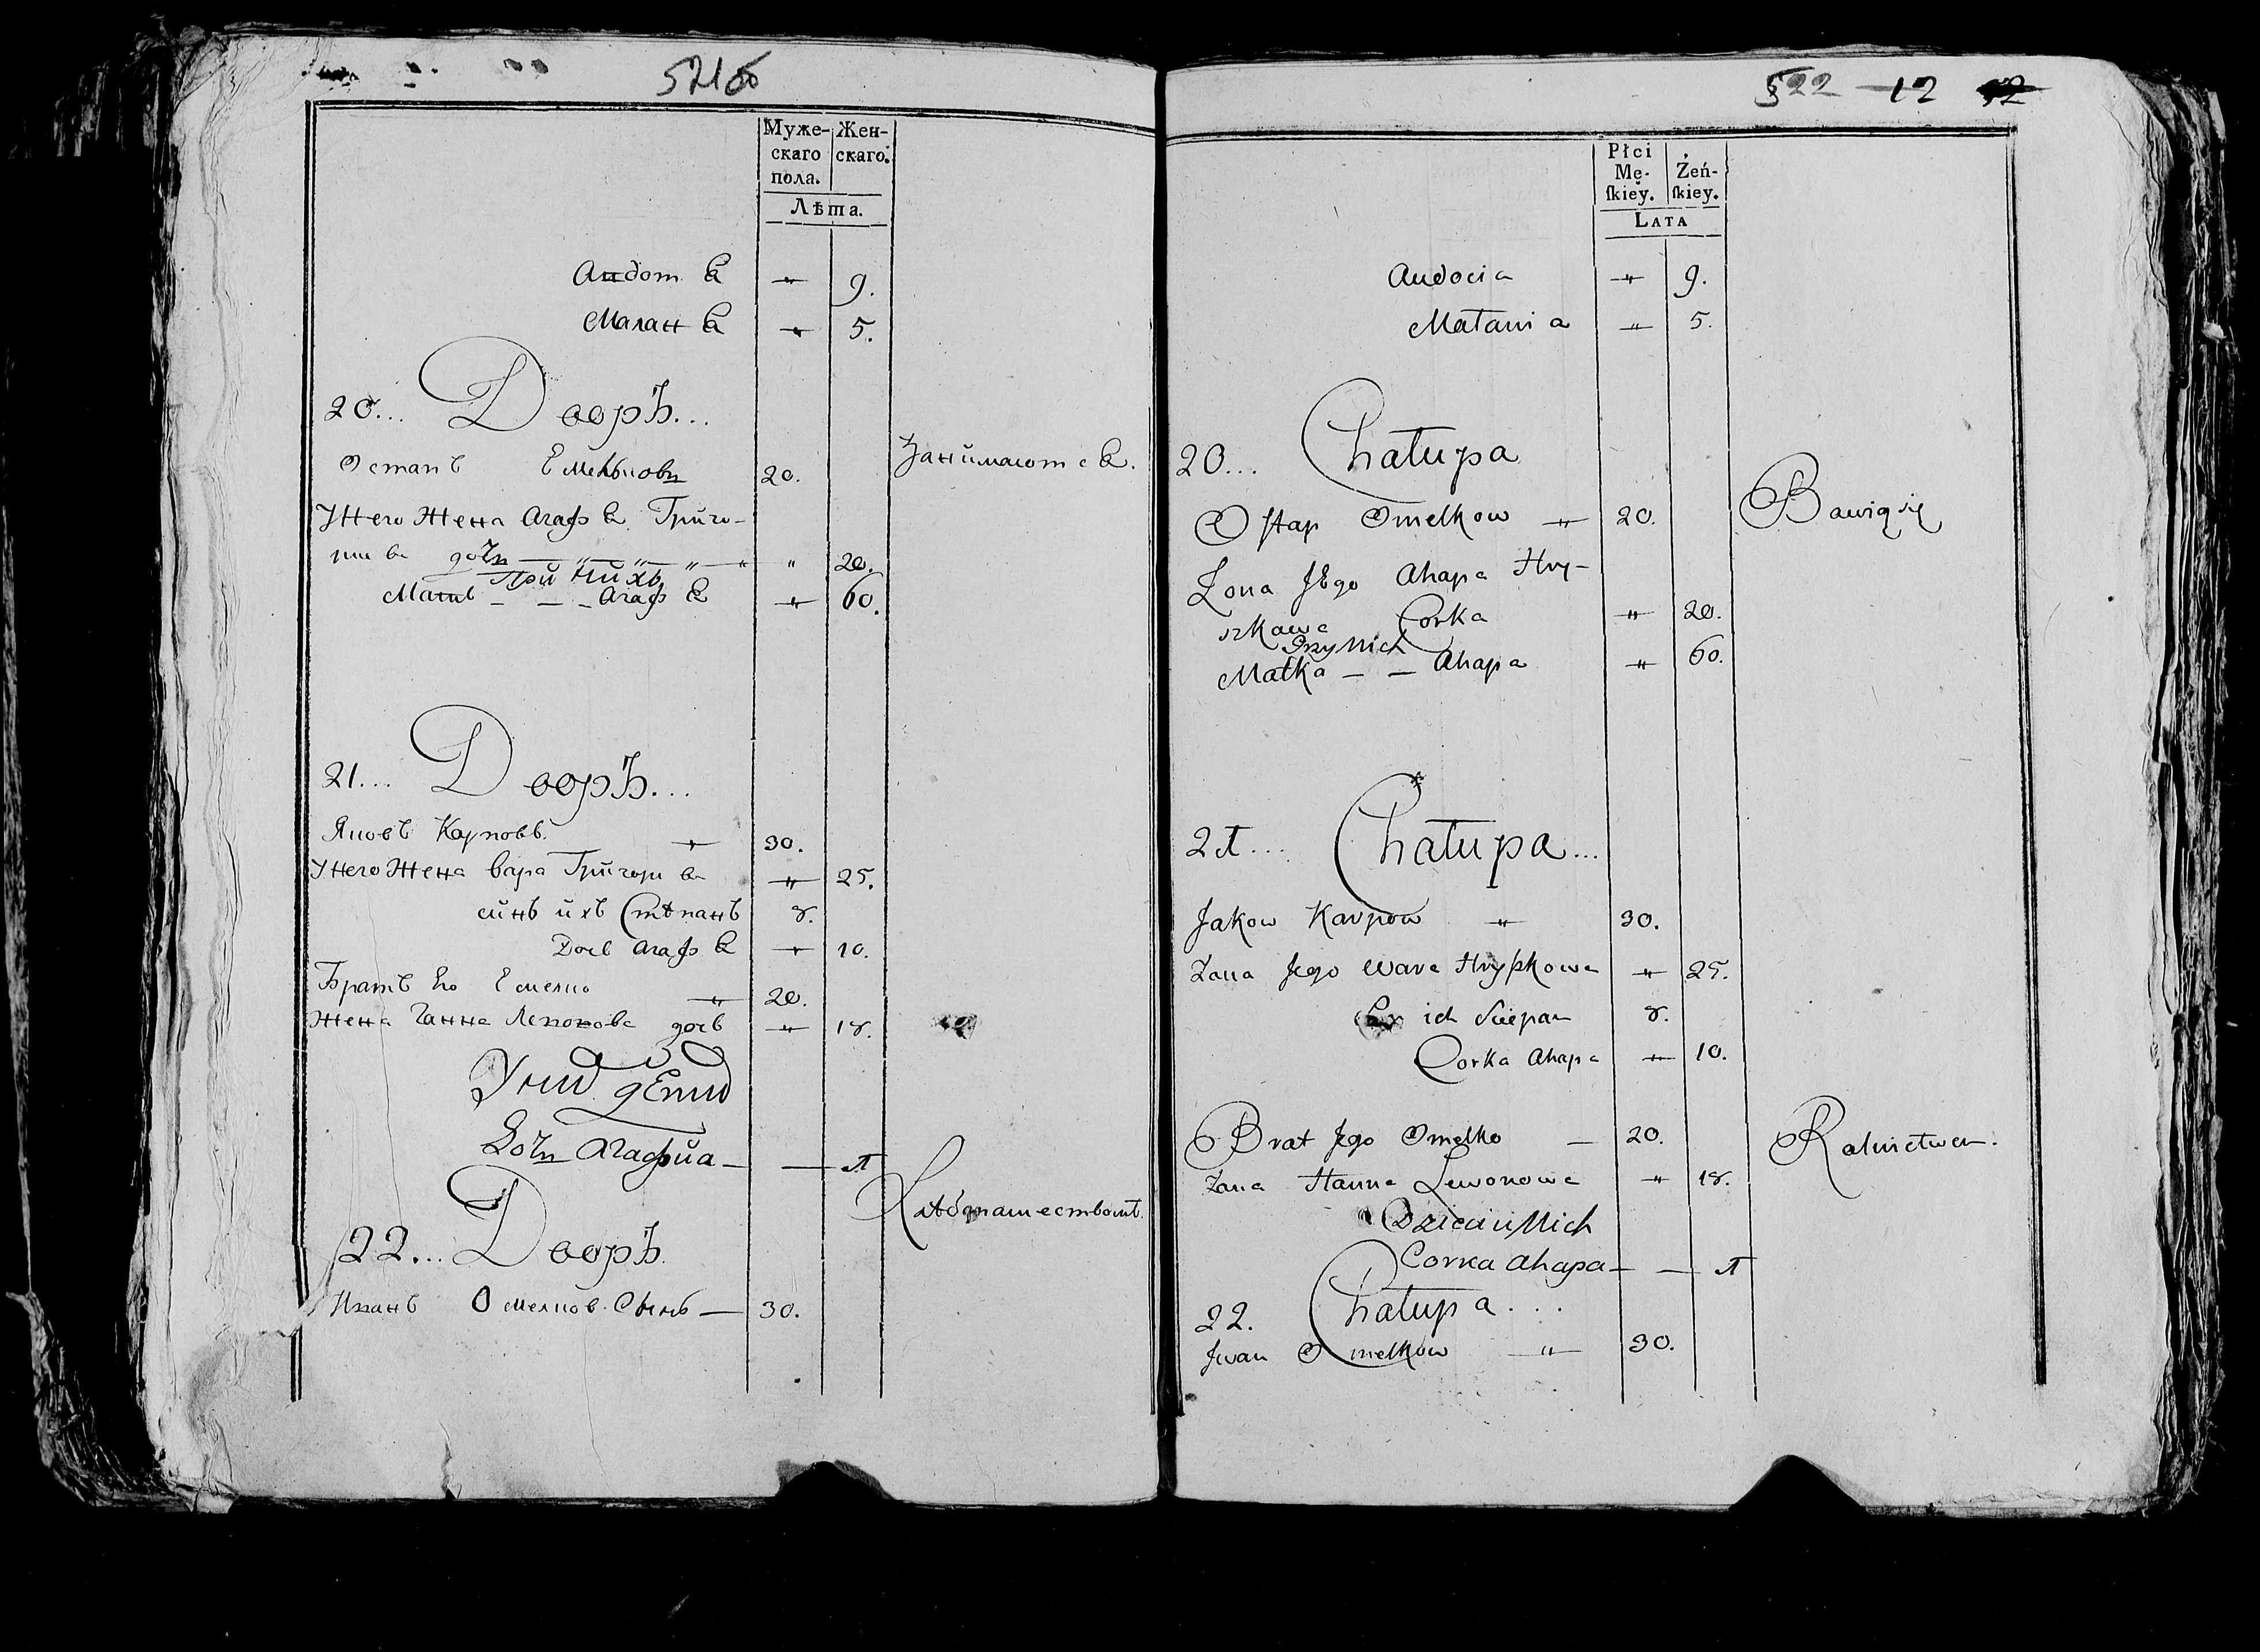 521
Муже-
скаго
пола.
Жен-
скаго.
Лѣта.
Андотꙗ " 9.
Маланꙗ " 5.
20... Дворъ...
Остапъ Емельнови 20. Занимаютсꙗ.
У него жена Агафꙗ Григо-
риева дочь " 20.
При них
Мать Агафꙗ " 60.
21... Дворъ...
Яковъ Карповъ " 30.
У него жена Вара Григориева " 25.
синъ ихъ Степанъ 8.
Дочь Агафꙗ " 10.
Братъ Его Емелко " 20.
Жена Ганна дочь " 18.
Дочь Агафиа — — 1
Хлѣбопашествомъ.
22... Дворъ.
Иванъ Омелков Сынъ — 30.
522 12
Płci
Mę-
ſkiey.
Żeń-
ſkiey.
LATA
Audocia " 9.
Małania " 5.
20... Chałupa
Ostap Omelkow " 20. Bawią się
Zona Jego Ahapa Hry-
szkowa Corka " 20.
Przy Nich
Matka — — Ahapa " 60.
21... Chałupa...
Jakow Karpow " 30.
Zona Jego Wara Hryszkowa " 25.
Syn ich Sciepan 8.
Corka Ahapa " 10.
Brat Jego Omelko — 20. Rolnictwem.
Zona Hanna Lewonowa " 18.
Dzieci u Nich
Corka Ahapa — — 1
22. Chałupa...
Jwan Omelkow " 30.